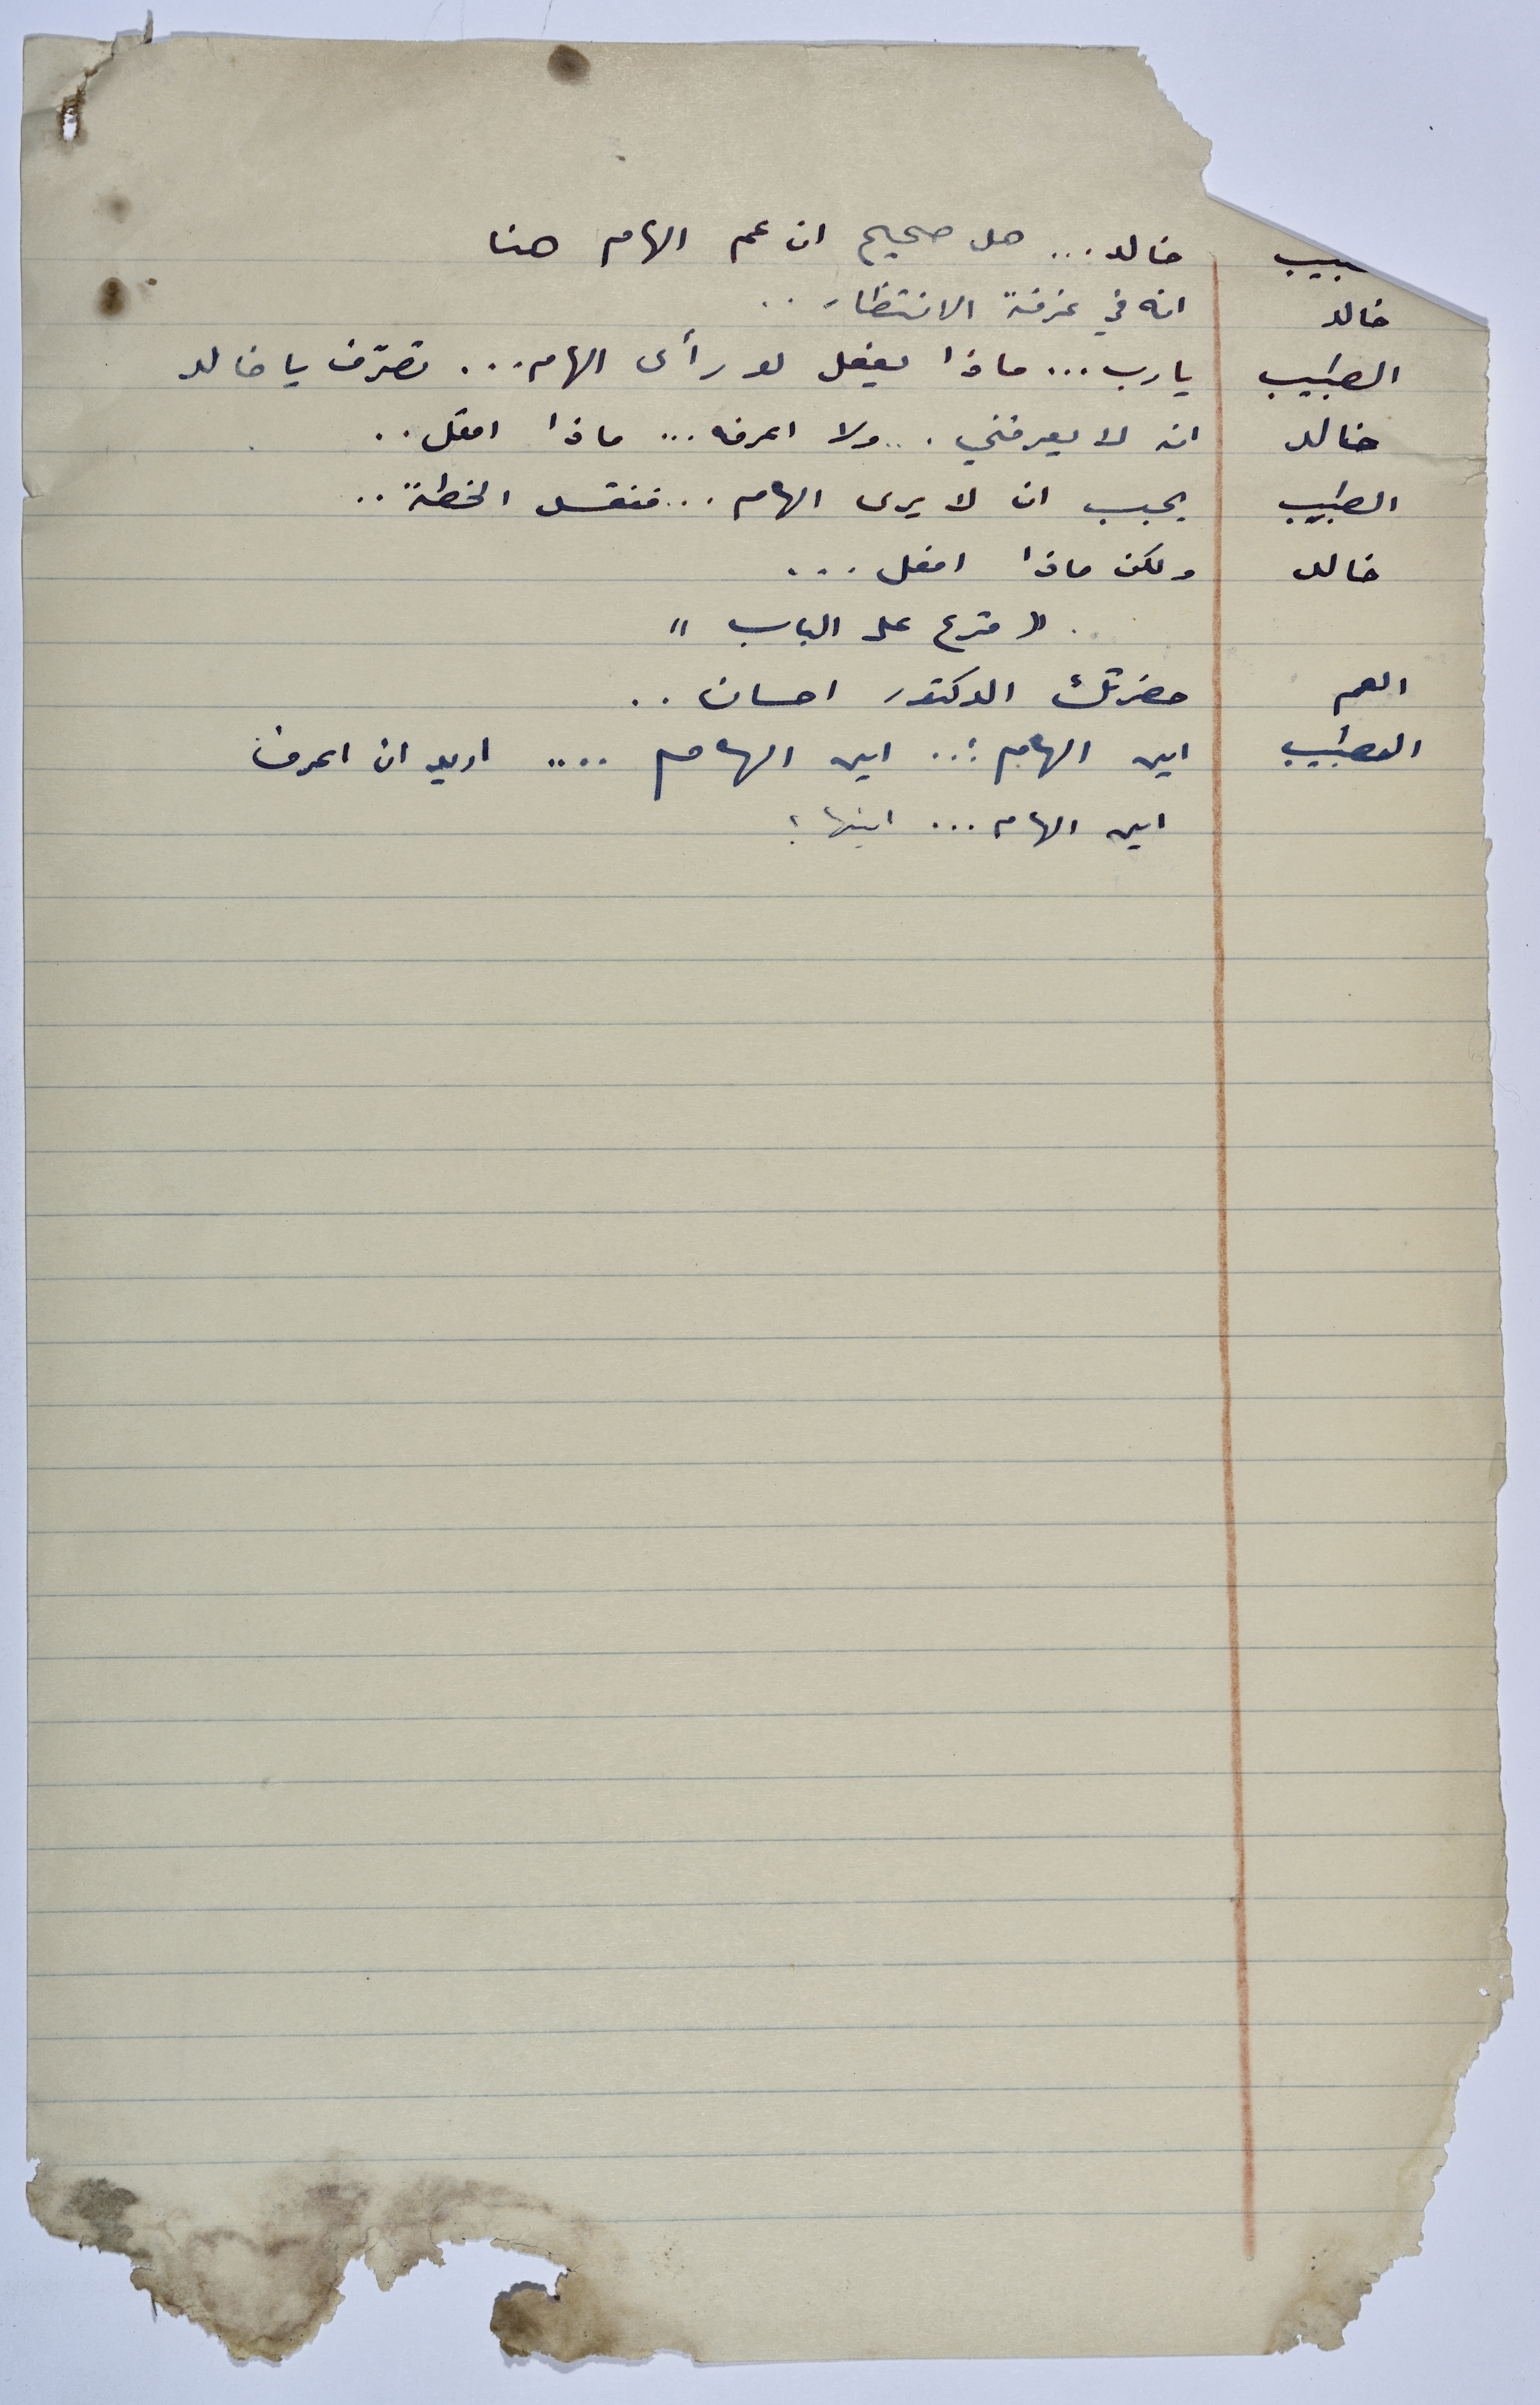 ـبيب خالد... هل صحيح ان عم الهام هنا
خالد انه في غرفة الانتظار..
الطبيب يارب... ماذا يفعل لو رأى الهام... تصرّف يا خالد
خالد انه لا يعرفني... ولا اعرفه... ماذا افعل..
الطبيب يجب ان لا يرى الهام... فتفشل الخطة..
خالد ولكن ماذا افعل...
« قرع على الباب »
العم حضرتك الدكتور احسان..
الطبيب اين الهام؟.. اين الهام.... اريد ان اعرف
اين الهام... اينها؟